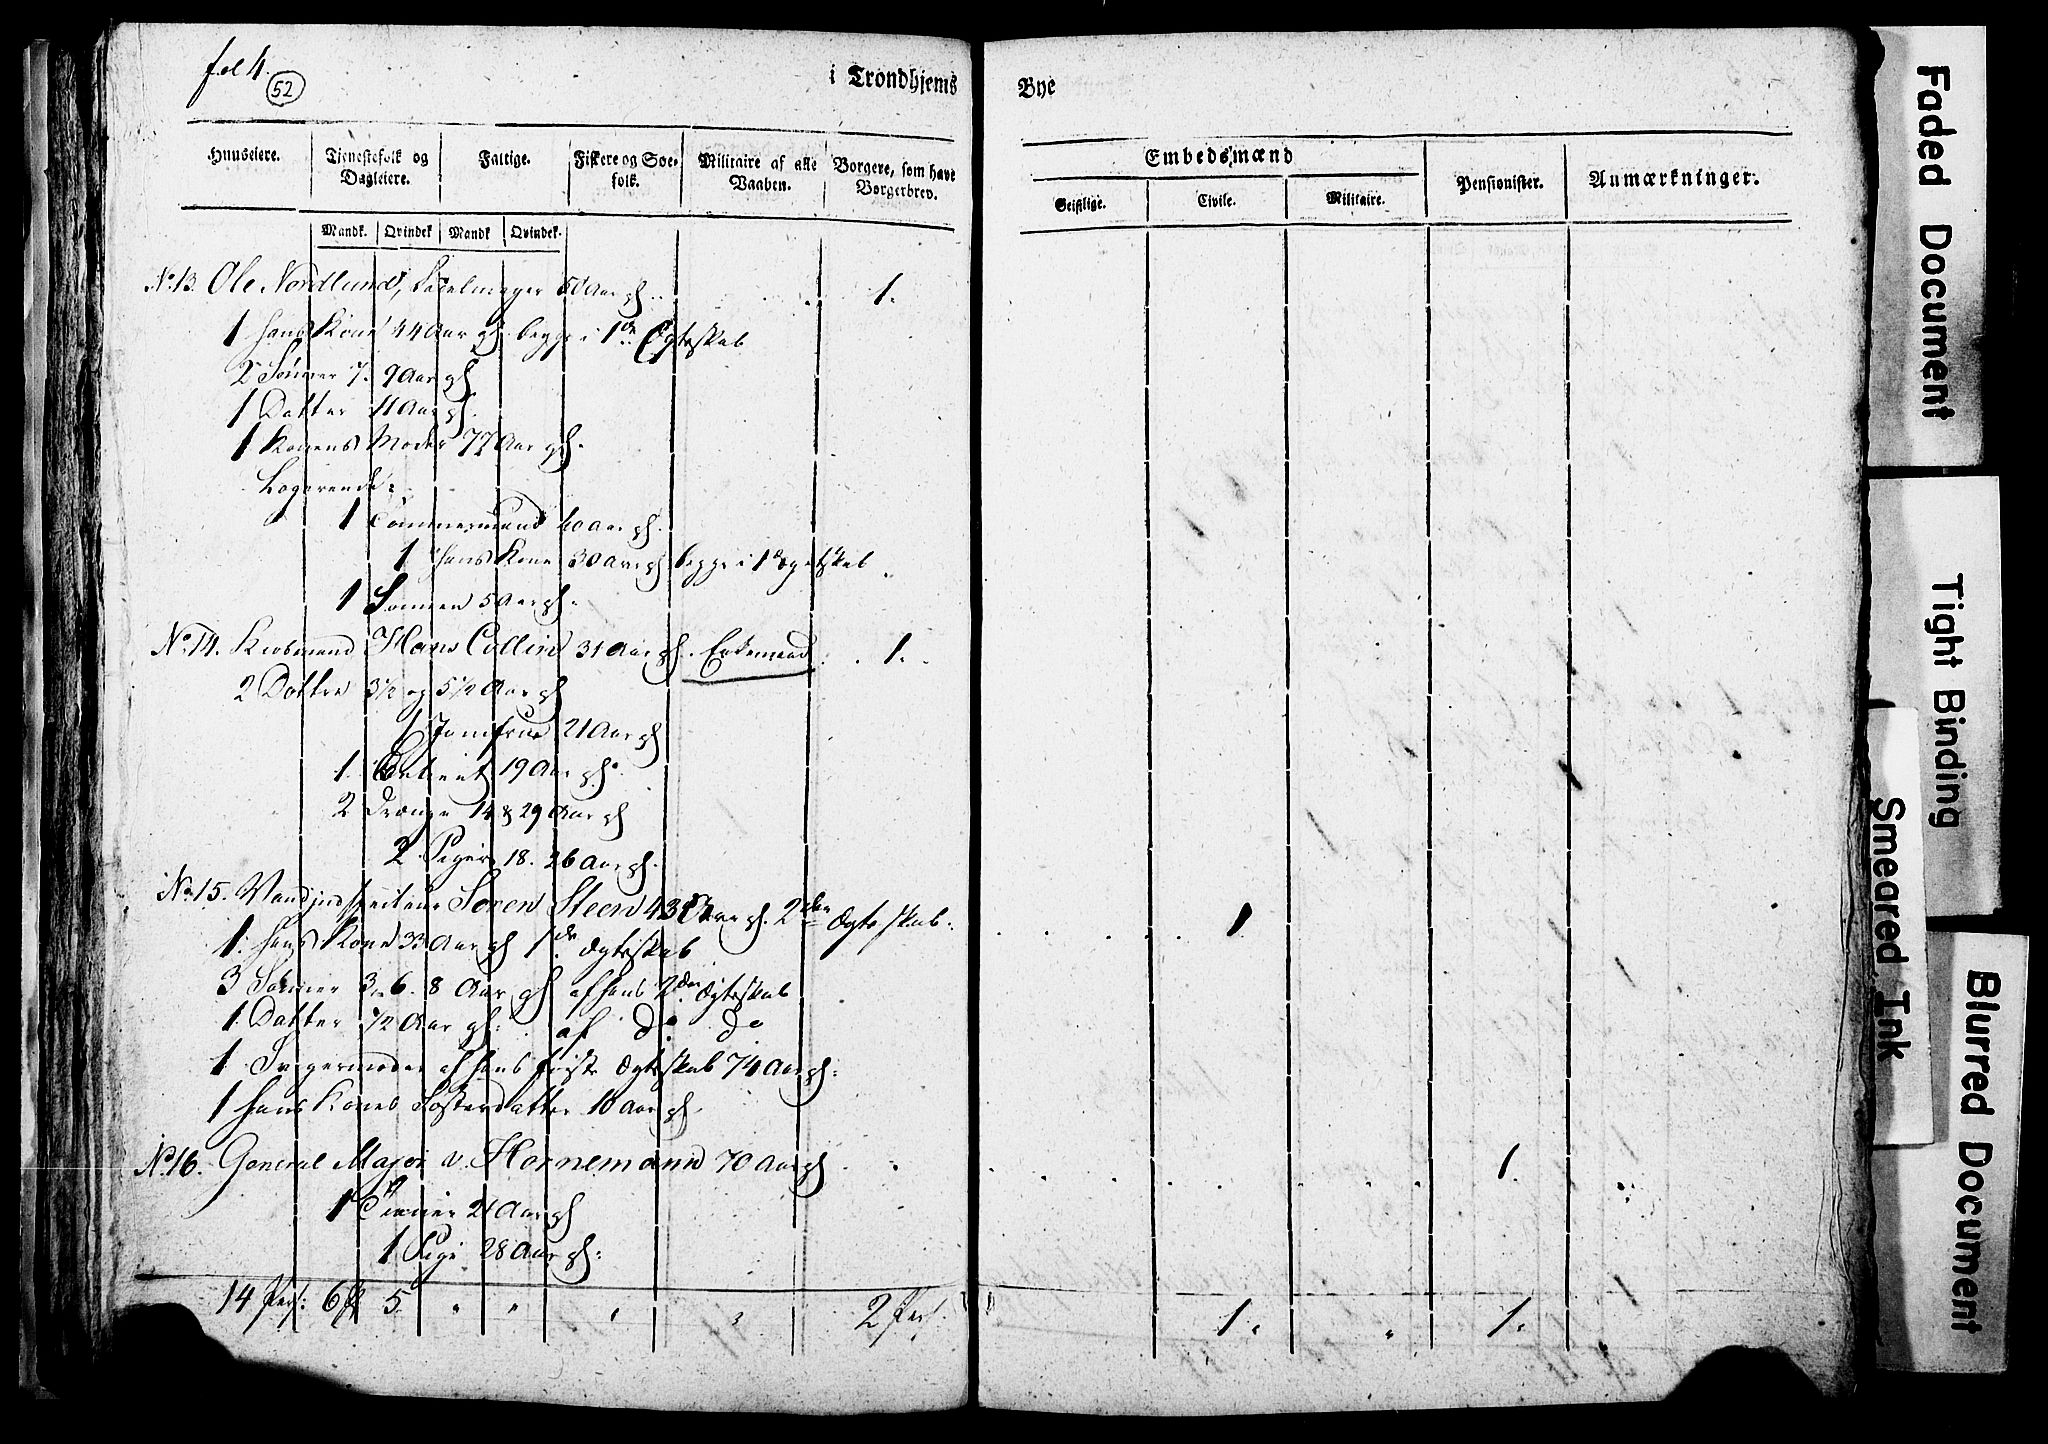 fol 4.
52
i Trondhjems Bye
Huuseiere. Tjenestefolk og Dagleiere. Faltige. Fiskere og Soefolk. Militaire af alle Vaaben. Borgere, som have Borgerbrev. Embedsmænd Pensionister. Anmærkninger.
Geistlige. Civile. Militaire.
Mandk. Qvindek Mandk Qvindek.
No. 13. Ole Nordlund, Sadelmager 50 Aar gl. 1.
1 hans Kone 44 Aar gl. begge i 1de Ægteskab
2 Sønner 7. 9 Aar gl
1 Datter 11 Aar gl.
1 Konens Moder 77 Aar gl.
Logerende:
1 Tømmermand 40 Aar gl.
1 hans Kone 30 Aar gl begge i 1de Ægteskab
1 Sønnen 5 Aar gl.
No. 14. Kiobmand Hans Collin 31 Aar gl. Enkemand 1.
2 Døttre 3 1/2 og 5 1/2 Aar gl
1 Jomfrue 21 Aar gl
1. Betient 19 Aar gl.
2 Drænge 14 & 29 Aar gl
2 Piger 18. 26 Aar gl.
No. 15. Vandinspecteur Søren Steen 43 Aar gl. 2den Ægteskab. 1
1. hans Kone 33 Aar gl 1de Ægteskab
3 Sønner 3. 6. 8 Aar gl af hans 2den Ægteskab
1. Datter 1/2 Aar gl: af do do
1 Svigermoder af hans første Ægteskab 74 Aar gl:
1 hans Kones Søsterdatter 10 Aar gl.
No. 16. General Major v. Hornemann 70 Aar gl 1.
1 Tiener 21 Aar gl
1 Pige 28 Aar gl:
14 Pers: 6 5 " " " " 2 Pers. 1. " 1.
Faded Document
Tight Binding
Smeared Ink
Blurred Document